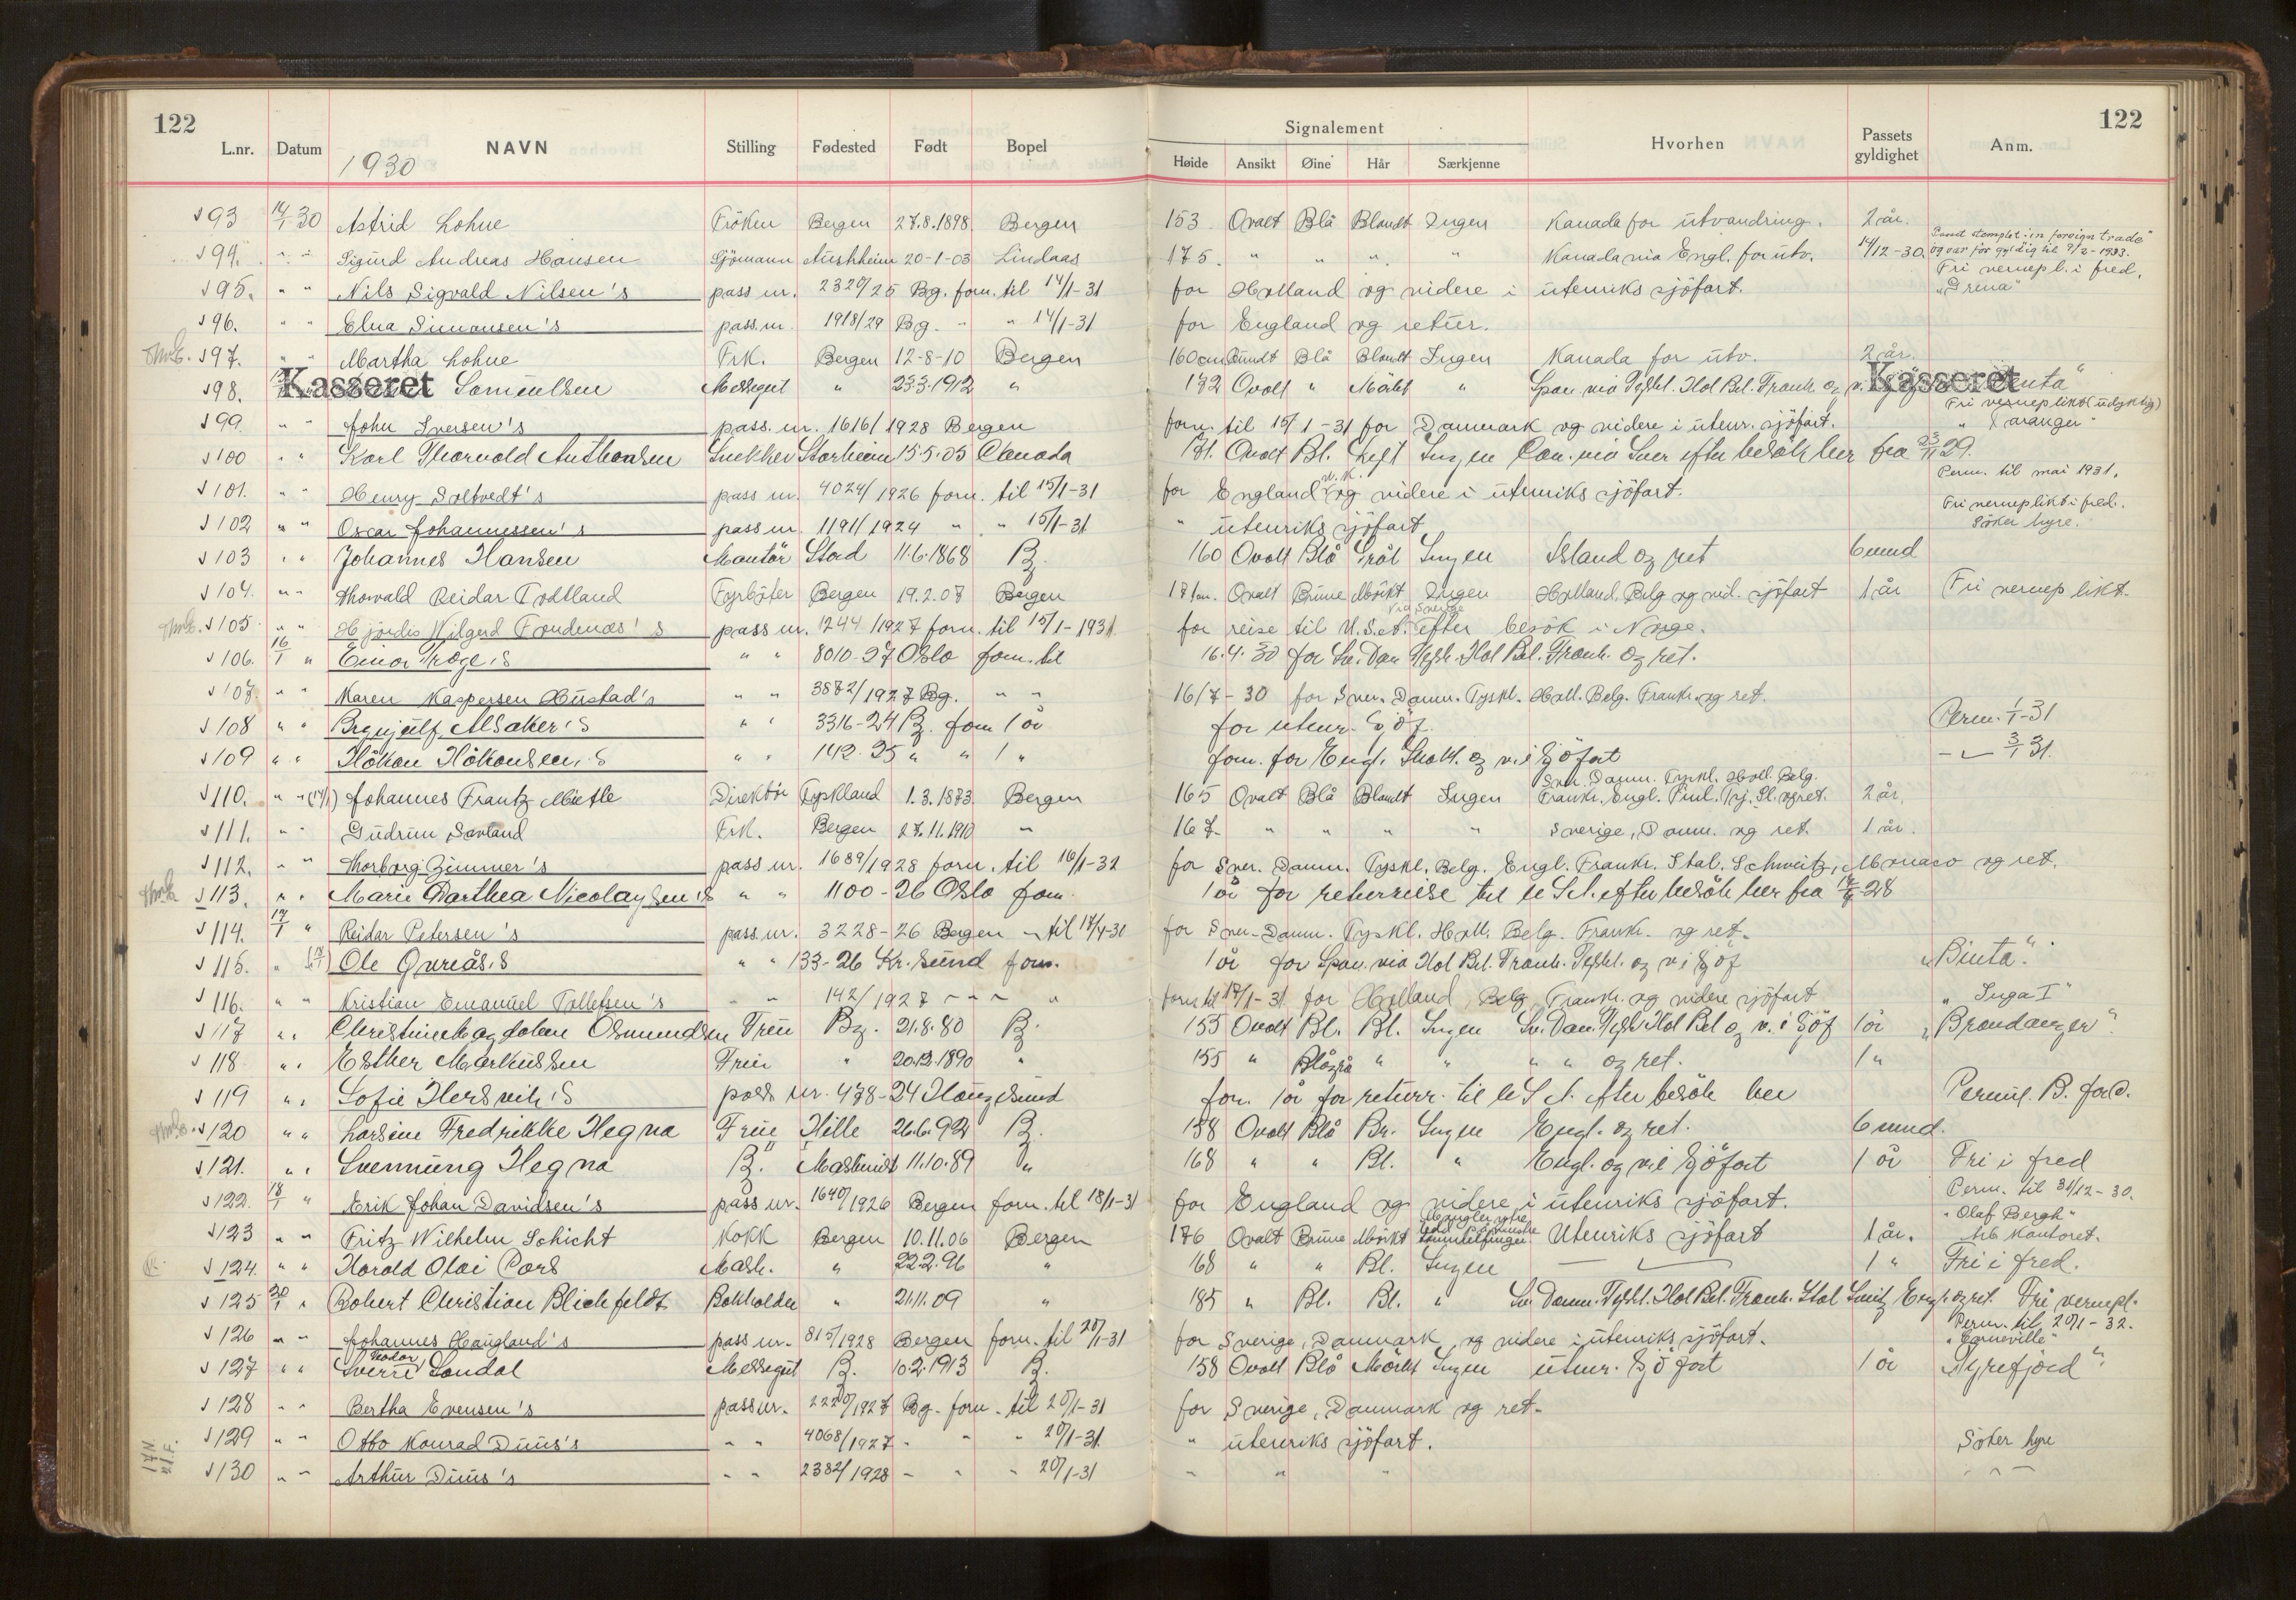 122
122
L.nr. Datum NAVN Stilling Fødested Født Bopel Signalement Hvorhen Passets gyldighet Anm.
Høide Ansikt Øine Hår Særkjenne
1930
93 14/1 30 Astrid Lohne Fröken Bergen 27.8.1898 Bergen 153 Ovalt Blå Blondt Ingen Kanada for utvandring. 2 år.
94. " " Sigurd Andreas Hansen Sjömann 20-1-03 Lindaas 175. " " " " Kanada via Engl. for utv. 14/12-30. stemplet in foreign trade"
og var før gyldig til 9/2-1933.
Fri vernepl. i fred.
95. " " Nils Sigvald Nilsen's pass nr. 2320/25 Bg. forn. til 14/1-31 for Holland og videre i utenriks sjöfart. "Grena"
96. " " Elna Simonsen's pass nr. 1918/29 Bg. " " 14/1-31 for England og retur.
97. " " Martha Lohne Frk. Bergen 12-8-10 Bergen 160cm Rundt Blå Blondt Ingen Kanada for utv. 2 år.
98. Kasseret Samuelsen Messegut " 23.3.1912 " 172 Ovalt " Mörkt " Span. via Tyskl. Hol Bel. Frank. og v. Kasseret
Fri verneplikt (udyktig)
99. " " John Iversen's pass. nr. 1616/1928 Bergen forn. til 15/1-31 for Danmark og videre i utenr. sjöfart. " Taranger"
100 " " Karl Thorvald Anthonsen Snekker Storheim 15.5.05 Canada 181. Ovalt Bl. Lyst Ingen Can. via Sver efter besök her fra 23/11 29.
Perm. til mai 1931.
101. " " Henry Soltvedt's pass nr. 4024/1926 forn. til 15/1-31 for England v.K. og videre i utenriks sjöfart.
Fri verneplikt i fred.
102 " " Oscar Johannessen's pass nr. 1191/1924 " " 15/1-31 " utenriks sjöfart Söker hyre.
103 " " Johannes Hansen Montör Stord 11.6.1868 B. 160 Ovalt Blå Grått Ingen Island og ret 6 mnd
104. " " Thorvald Reidar Todtland Fyrböter Bergen 19.2.07 Bergen Ovalt Brune Mörkt Ingen Holland, Belg og vid. sjöfart 1 år Fri verneplikt.
105 " " Hjördis Wilgerd Frudenæs's pass nr. 1244/1927 forn. til 15/1-1931 for reise til U.S.A. via Sverige efter besök i Norge.
106. 16/1 " Einar Troge's " " 8010-27 Oslo forn. til 16.4.30 for Sv. Dan Tyskl. Hol Bel. Frank. og ret.
107. " " Karen Kaspersen Hustad's " " 3872/1927 Bg. " " 16/7-30 for Sver. Danm. Tyskl. Holl. Belg. Frankr. og ret.
108 " " Brynjulf Alsaker's " " 3316-24 B. forn 1 år for utenr. Sjöf. Perm. 1/1-31
109 " " Håkon Håkonsen's " " 142-25 " " 1 " forn. for Engl. Skotl. og v. i Sjöfart 3/1 31.
110. " " (14/1) Johannes Frantz Mütle Direktör Tyskland 1.3.1873 Bergen 165 Ovalt Blå Blondt Ingen Sver. Danm. Tyskl. Holl. Belg.
Frankr. Engl. Finl. Tsj. Sl. og ret. 2 år.
111. " " Gudrun Sævland Frk. Bergen 27.11.1910 " 167 " " " " Sverige, Danm. og ret. 1 år.
112. " " Thorborg Zimmer's pass nr. 1689/1928 forn. til 16/1-32 for Sver. Danm. Tyskl. Belg. Engl. Frankr. Ital. Schweitz, Monaco og ret.
113. " " Marie Dorthea Nicolaysen's " " 1100-26 Oslo forn 1 år for returreise til U S A. efter besök her fra 28
114. 17/1 " Reidar Petersen's pass. nr. 3228-26 Bergen til 17/4-31 for Sver. Danm. Tyskl. Holl. Belg. Frankr. og ret.
115. " Ole Gureås's " " 133-26 Kr.sund forn. 1 år for Span. via Hol Bel. Frank. Tyskl. og v i Sjöf "Binta".
116. " " Kristian Emanuel Tollefsen's " " 142/1927 " " forn. til 17/1-31 for Holland, Belg. Frankr. og videre sjöfart " Inga I"
117 " " Christine Magdalene Osmundsen Frue Bg. 21.8.80 B. 155 Ovalt Bl. Bl. Ingen Sv. Dan. Tyskl Hol Bel og v. i Sjöf 1 år "Brandanger"
118 " " Esther Markussen Frue " 20.12.1890 " 155 " Blågrå " " " " og ret. 1 "
119 " " Sofie Hersvik's pass nr. 478-24 Haugesund forn. 1 år for returr. til U S A. efter besök her Permit. B.
120 " " Larsine Fredrikke Hegna Frue Hille 26.6.92 B. 158 Ovalt Blå Br. Ingen Engl. og ret. 6 mnd.
121. " " Svennung Hegna B. 11.10.89 " 168 " " Bl. " Engl. og v i Sjöfart 1 år Fri i fred
Perm. til 31/12-30.
122. 18/1 " Erik Johan Davidsen's pass nr. 1640/1926 Bergen forn. til 18/1-31 for England og videre i utenriks sjöfart. "Olaf Bergh"
123 " " Fritz Wilhelm Schicht Kokk Bergen 10.11.06 Bergen 176 Ovalt Brune Mörkt Mangler ytre
ledd venstre
tommelfinger Utenriks sjöfart 1 år. Arb. kontoret.
124. " " Harald Olai Pors Mask. " 22.2.96 " 168 " " Bl. Ingen 1 " Fri i fred.
125 20/1 " Robert Christian Blichfeldt Bokholder " 21.11.09 " 185 " Bl. Bl. " Sv. Danm. Tyskl. Hol Bel. Frank. Ital Sveitz Engl. og ret. Fri vernepl.
Perm. til 20/1-32.
126 " " Johannes Haugland's pass nr. 815/1928 Bergen forn. til 20/1-31 for Sverige, Danmark og videre i utenriks sjöfart. "Corneville"
127 " " Sverre Nodar Sondal Messegut B. 10.2.1913 B. 158 Ovalt Blå Mörkt Ingen utenr. Sjöfart 1 år "Tyrefjord".
128 " " Bertha Evensen's pass nr. 2220/1927 Bg. forn. til 20/1-31 for Sverige, Danmark og ret.
129 " " Otto Konrad Duus's " " 4068/1927 " " 20/1-31 " utenriks sjöfart. Söker hyre
130 " " Arthur Duus's " " 2382/1928 " " 20/1-31 " " "